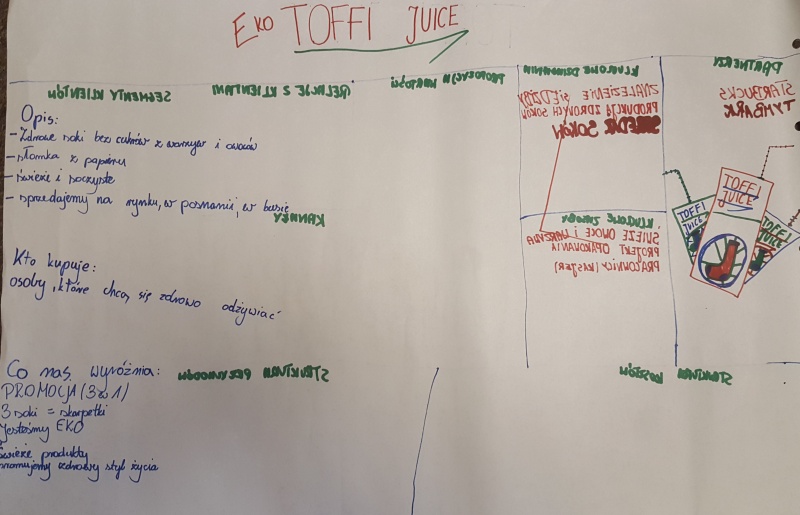 EKO TOFFI JUICE
PARTNERZY
KLUCZOWE DZIAŁANIA
PROPOZYCJA WARTOŚCI
RELACJE Z KLIENTAMI
SEGMENTY KLIENTÓW
STARBUCKS
TYMBARK
ZNALEZIENIE SIEDZIBY
PRODUKCJA ZDROWYCH SOKÓW
SOKÓW
Opis:
- Zdrowe soki bez cukrów z warzyw i owoców
- słomka z papieru
- świeże i soczyste
- sprzedajemy na rynku, w poznaniu, w busie
KANAŁY
KLUCZOWE ZASOBY
ŚWIEŻE OWOCE I WARZYWA
PROJEKT OPAKOWANIA
PRACOWNICY (KASJER)
TOFFI
JUICE
TOFFI
JUICE
TOFFI
JUICE
Kto kupuje:
osoby, które chcą się zdrowo odżywiać
STRUKTURA PRZYCHODÓW
STRUKTURA KOSZTÓW
Co nas wyróżnia:
PROMOCJA (3 w 1)
3 soki = skarpetki
Jesteśmy EKO
Świeże produkty
promujemy zdrowy styl życia